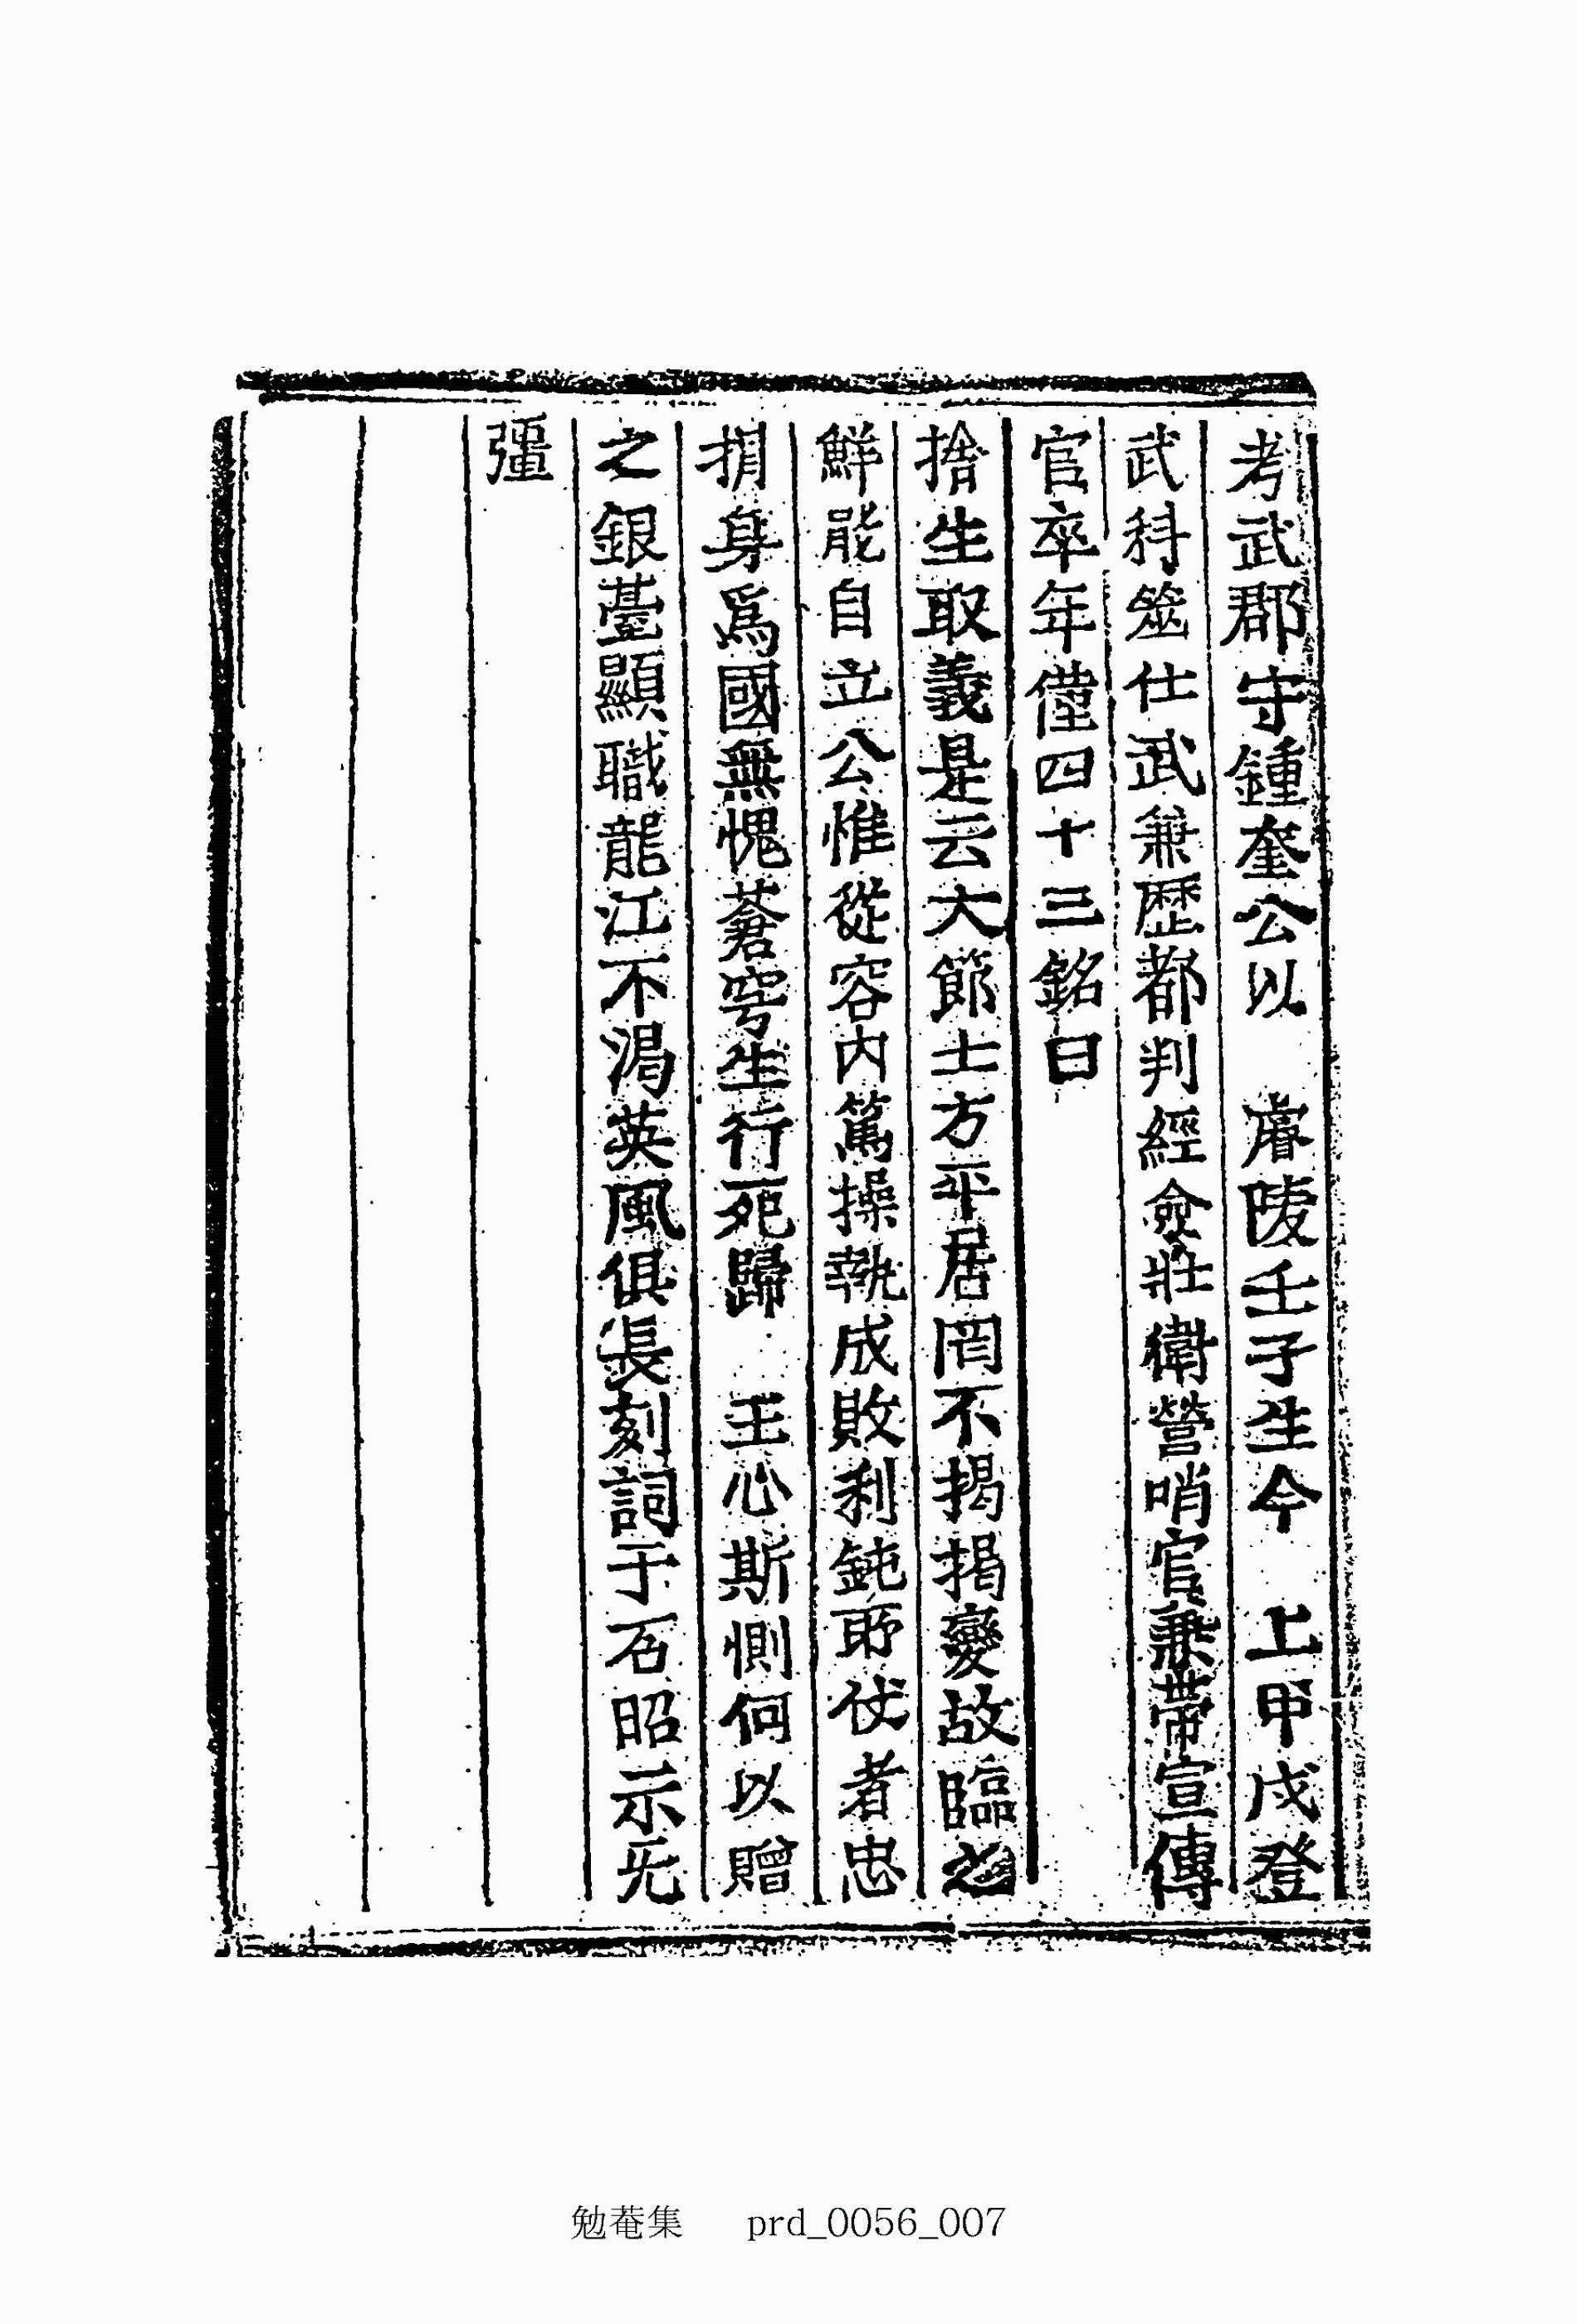 考武郡守鍾奎公以　睿陵壬子生今　上甲戌登
武科筮仕武兼歷都判經僉壯衛營哨官兼帶宣傳
官卒年僅四十三銘曰
捨生取義是云大節士方平居罔不揭揭變故臨之
鮮能自立公惟從容內篤操執成敗利鈍所仗者忠
捐身爲國無愧蒼穹生行死歸　王心斯惻何以贈
之銀臺顯職龍江不渴英風俱長刻詞于石昭示无
彊
勉菴集 prd_0056_007